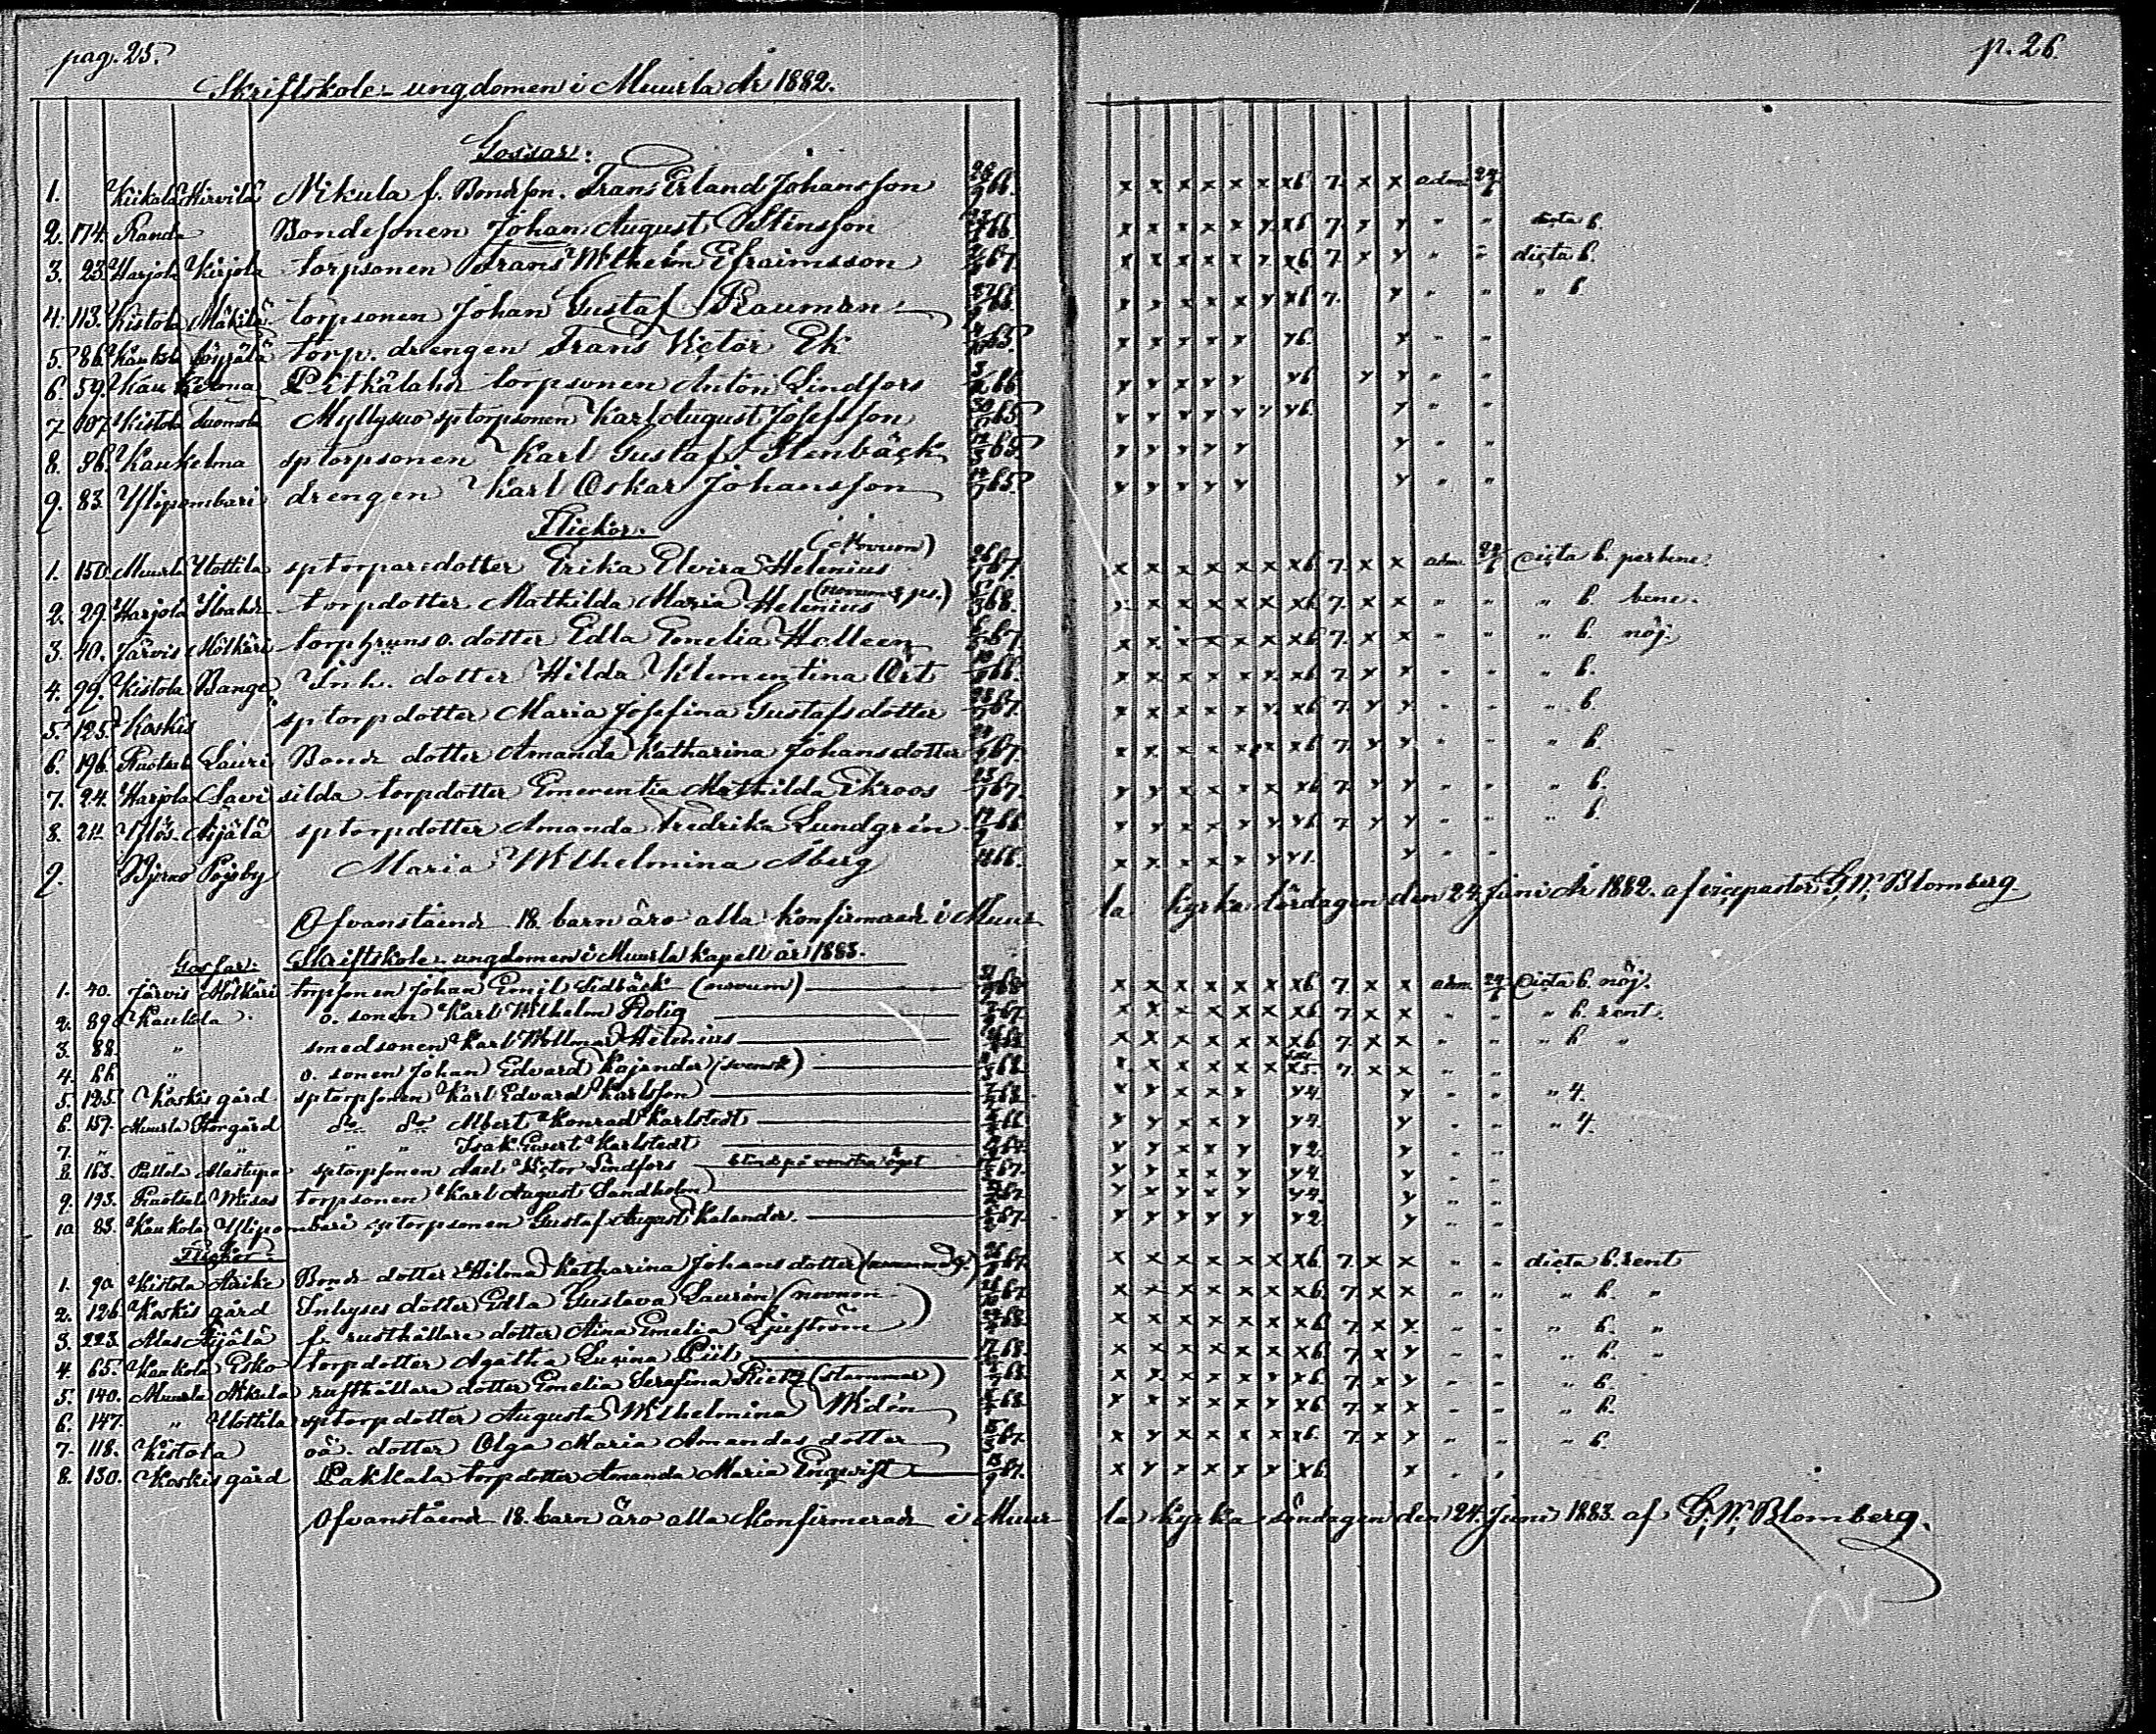 pag. 25.
p. 26.
Skriftskole-ungdomen i Muurla År 1882.
Gossar:
1. Kiikala Hirvilä Nikula f. Bondeson. Frans Erland Johansson 66. x x x x x x x6. 7. x x adm.
2. 174. Randa Bondesonen Johan August Stensson 66. x x x x x x x6 7. x x " " dicta 6.
3. 23. Harjola Kirjola torpsonen Frans Wilhelm Efraimsson 67. x x x x x x x6. 7. x x " " dicta 6.
4. 113. Kistola Mäkilä torpsonen Johan Gustaf Rauman 66. x x x x x x x6 7. x " " " 6
5. 86. Kaukola torp. drengen Frans Victor Ek 65. x x x x x x6. x " "
6. 59. Kaukelma Pitkälahde torpsonen Anton Lindfors 66. x x x x x x6 x x " "
7. 107. Kistola Suomela Myllysuo sptorpsonen Karl August Josefsson 65. x x x x x x x6. x " "
8. 96. Kaukelma sptorpsonen Karl Gustaf Stenbäck 65. x x x x x x " "
9. 83. Ylipombari drengen Karl Oskar Johansson 65. x x x x x x " "
Flickor.
1. 150. Muurla Uottila sptorparedotter Erika Elvira Helenius (Novum) 67. x x x x x x x6. 7. x x adm. dicta 6. perbene.
2. 29. Harjola torpdotter Mathilda Maria Helenius 68. x x x x x x x6 7. x x " " " 6. bene.
3. 40. Järvis Mötkäri o. dotter Edla Emelia Helleen 67. x x x x x x x6 7. x x " " " 6. nöj.
4. 99. Kistola Bange Inh. dotter Hilda Klementina Ört 66. x x x x x x x6 7. x x " " " 6.
5. 125. Koskis sptorpdotter Maria Josefina Gustafsdotter 67. x x x x x x x6 7. x x " " " 6.
6. 196. Lauri Bonde dotter Amanda Katharina Johansdotter 67. x x x x x x x6 7. x x " " " 6.
7. 24. Harjola torpdotter Emerentia Mathilda Ekroos 67. x x x x x x x6 7. x x " " " 6.
8. 211. Ylös. Aijälä sptorpdotter Amanda Fredrika Lundgrén 66. x x x x x x x6 7. x x " " " 6.
9. Bjerno Pojoby Maria Wilhelmina Åberg 66. x x x x x x x1. x " "
Ofvanstående 18. barn äro alla konfirmerade i Muurla kyrka lördagen den 24. Juni År 1882. af vicepastor G.W. Blomberg.
Skriftskole-ungdomen i Muurla kapell år 1883.
Gossar:
1. 40. Järvis Mötkäri torpsonen Johan Emil Lidbäck (novum) 68 x x x x x x x6. 7. x x adm. dicta 6. nöj.
2. 89. Kaukola o. sonen Karl Wilhelm Rolig 67. x x x x x x x6. 7. x x " " " 6. rent.
3. 88. " smedsonen Karl Hollmar Helenius x x x x x x x6 7. x x " " " 6 "
4. 66. " o. sonen Johan Edvard Kajander (svensk) 68. x x x x x x x5. 7. x x " "
5. 125. Koskis gård sptorpsonen Karl Edvard Karlsson 68. x x x x x x4. x " " " 4.
6. 157. Muurla Storgård do do Albert Konrad Karlstedt 66. x x x x x x4. x " " " 4.
7. " " " " " Isak Evert Karlstedt x x x x x x2. x " "
8. 163. Pullola Alastupa sptorpsonen Axel Victor Lindfors blind på venstra ögat 67. x x x x x x4 x " "
9. 193. Wiisas torpsonen Karl August Sandholm 67. x x x x x x4. x " "
10. 83. Kaukola Ylipombari sptorpsonen Gustaf August Kalander. 67. x x x x x x2. x " "
Flickor
1. 90. Kistola Bonde dotter Hilma Katharina Johansdotter 67. x x x x x x x6. 7. x x " " dicta 6. rent
2. 126. Koskis gård Inhyses dotter Edla Gustava Laurén (novum) 67. x x x x x x x6. 7. x x " " " 6. "
3. 223. Alas Aijälä f. rusthållare dotter Aina Emelia 68. x x x x x x x6 7. x x " " " 6. "
4. 65. Kaukola Esko torpdotter Agatha Lusina 68. x x x x x x x6. 7. x x " " " 6. "
5. 140. Muurla Nikula rusthållare dotter Emelia Serafina (stammar) 68. x x x x x x x6. 7. x x " " " 6.
6. 147. " Uottila sptorpdotter Augusta Wilhelmina Widén 68. x x x x x x x6 7. x x " " " 6.
7. 118. Kistola oä. dotter Olga Maria Amandas dotter 67. x x x x x x x6. 7. x x " " " 6.
8. 130. Koskis gård Pakkala torpdotter Amanda Maria Enqvist 67. x x x x x x x6. x " "
Ofvanstående 18. barn äro alla konfirmerade i Muurla kyrka söndagen den 24. Juni 1883. af G.W. Blomberg.